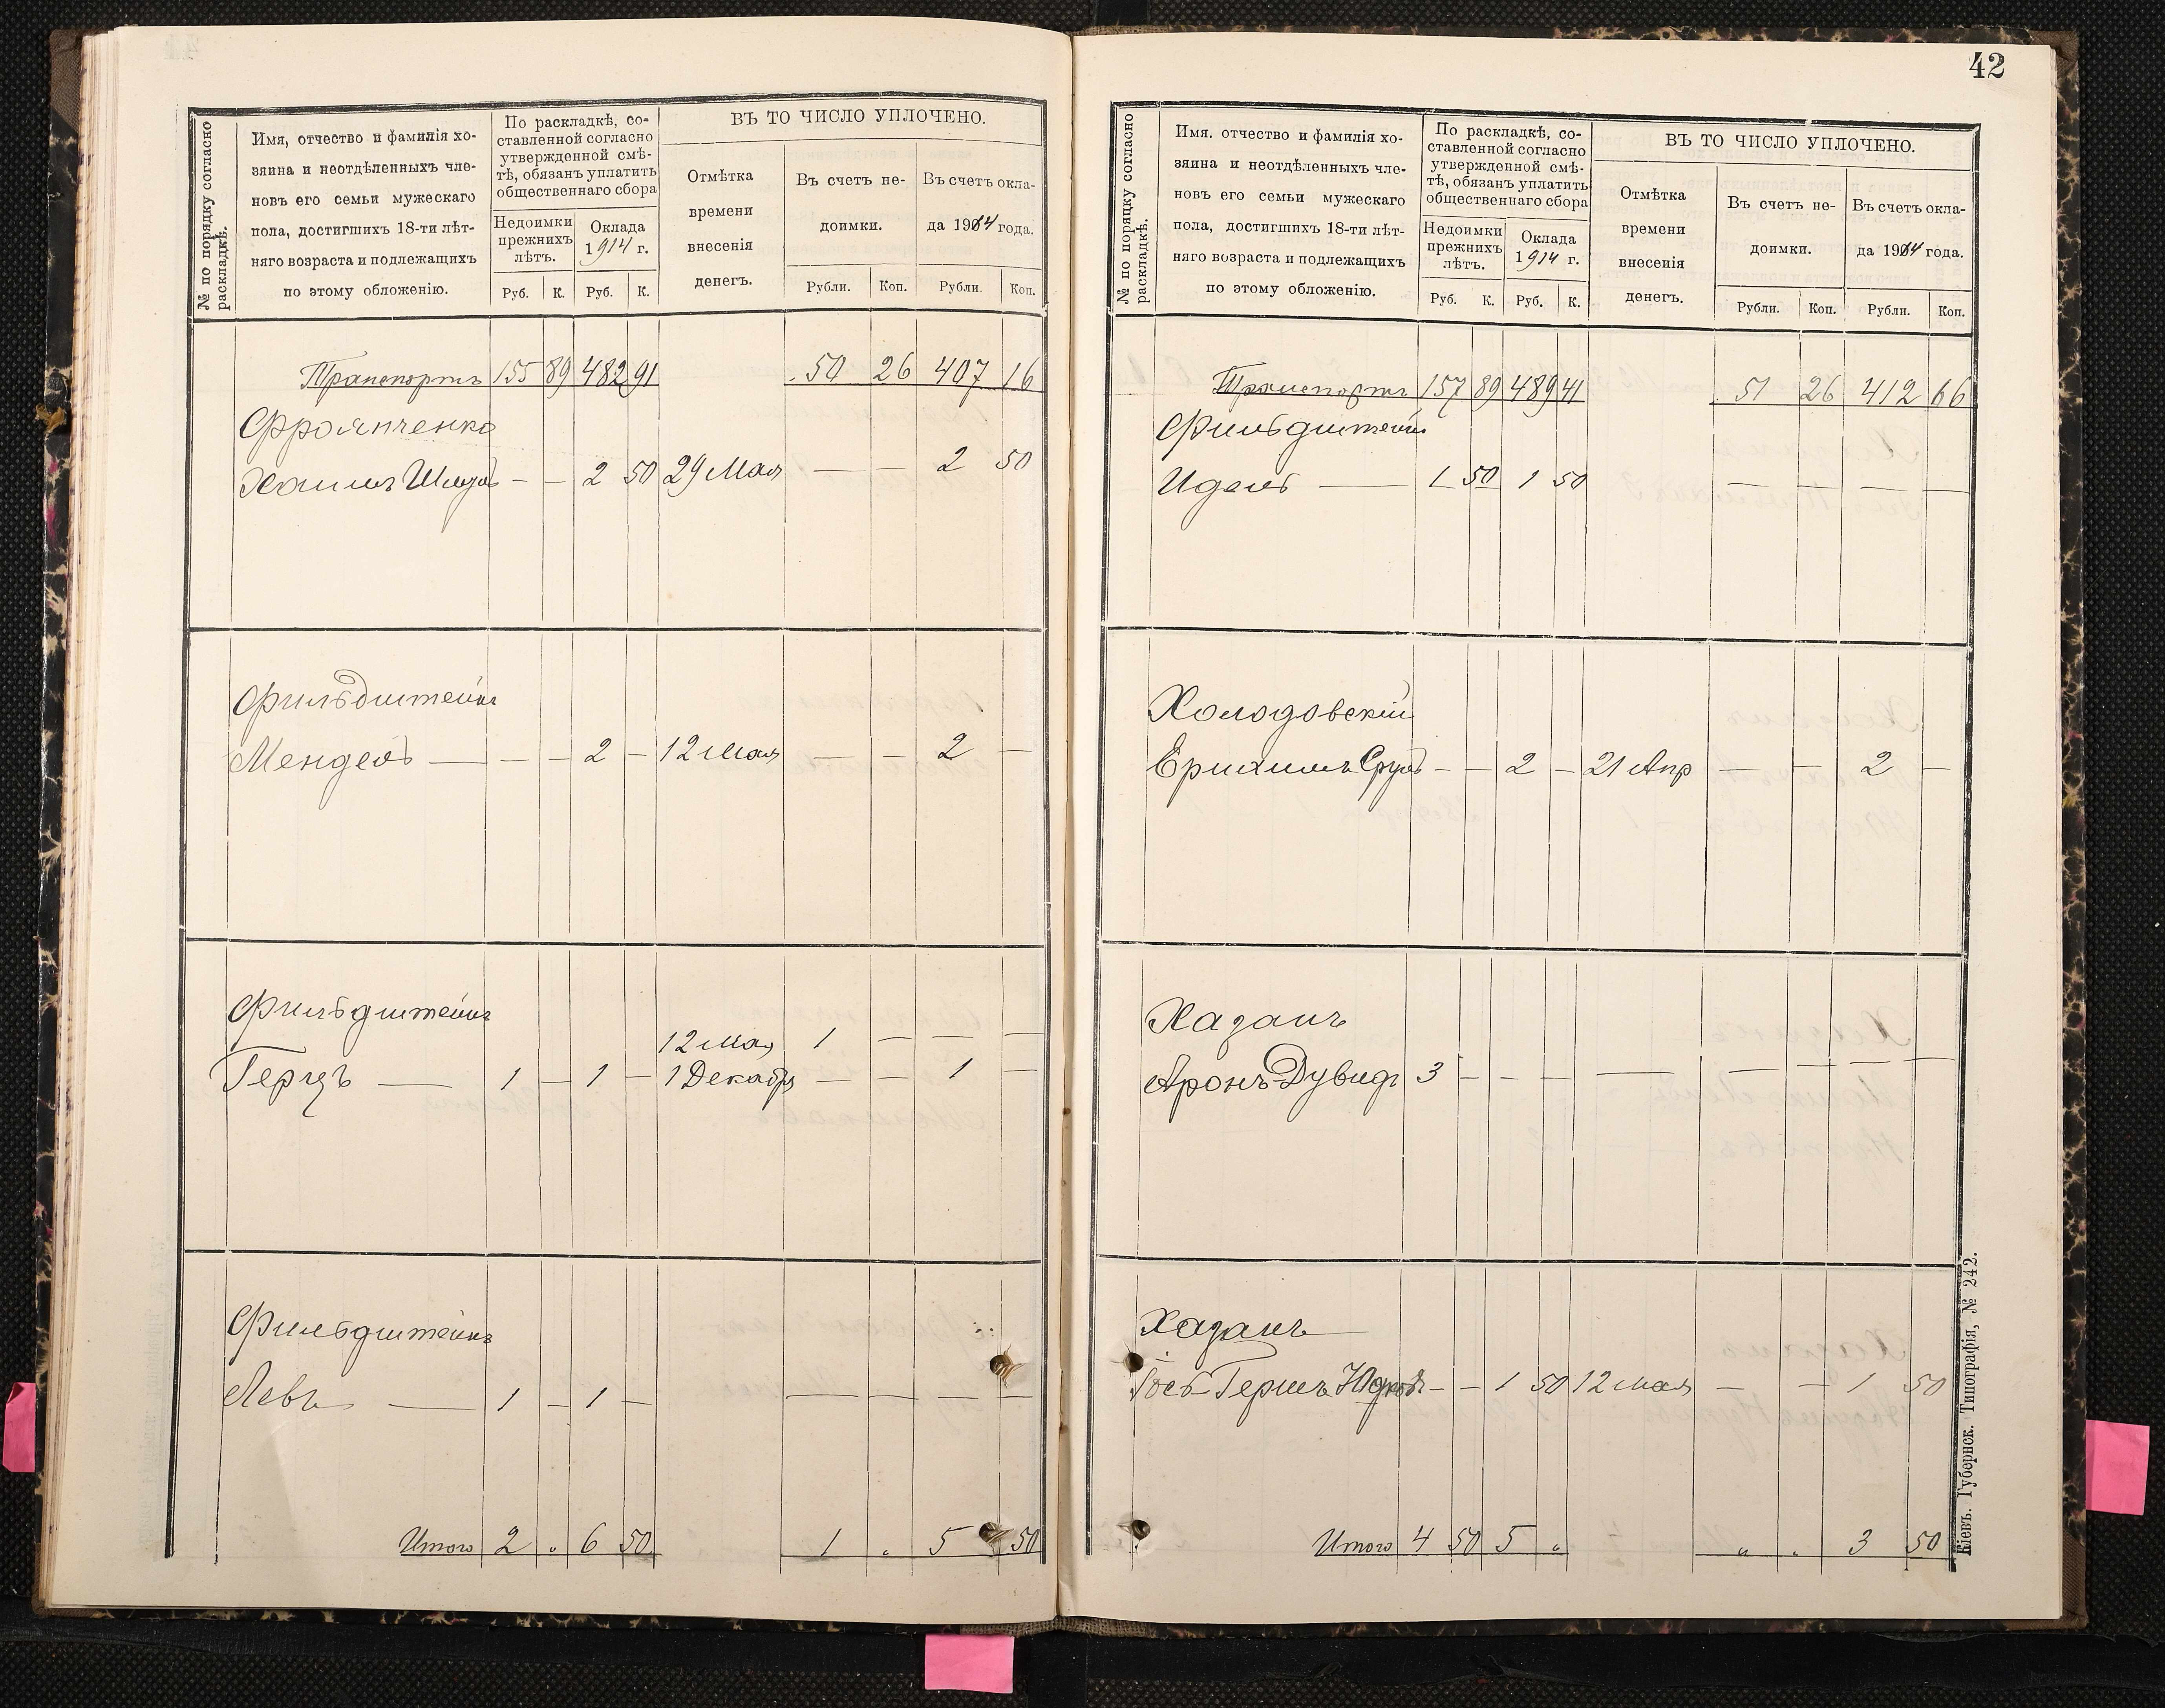 № по порядку согласно
раскладкѣ.
Имя, отчество и фамилія хо-
зяина и неотдѣленныхъ чле-
новъ его семьи мужескаго
пола, достигшихъ 18-ти лѣт-
няго возраста и подлежащихъ
по этому обложенію.
По раскладкѣ, со-
ставленной согласно
утвержденной смѣ-
тѣ, обязанъ уплатить
общественнаго сбора
Недоимки
прежнихъ
лѣтъ.
Оклада
1914 г.
Руб. К. Руб. К.
ВЪ ТО ЧИСЛО УПЛОЧЕНО.
Отмѣтка
времени
внесенія
денегъ.
Въ счетъ не-
доимки.
Въ счетъ окла-
да 1914 года.
Рубли. Коп. Рубли. Коп.
Транспортъ 155 89 482 91 50 26 407 16
Хаимъ — — 2 50 29 Мая — — 2 50
Фильдштейнъ
Мендель — — — 2 — 12 Мая — — 2 —
Фильдштейнъ
12 Мая 1 — — —
Герцъ — 1 — 1 — 1 Декабря — — 1 —
Фильдштейнъ
Левъ — 1 — 1 — — — — —
Итого 2 „ 6 50 1 „ 5 50
42
№ по порядку согласно
раскладкѣ.
Имя. отчество и фамилія хо-
зяина и неотдѣленныхъ чле-
новъ его семьи мужескаго
пола, достигшихъ 18-ти лѣт-
няго возраста и подлежащихъ
по этому обложенію.
По раскладкѣ, со-
ставленной согласно
утвержденной смѣ-
тѣ, обязанъ уплатить
общественнаго сбора
Недоимки
прежнихъ
лѣтъ.
Оклада
1914 г.
Руб. К. Руб. К.
ВЪ ТО ЧИСЛО УПЛОЧЕНО.
Отмѣтка
времени
внесенія
денегъ.
Въ счетъ не-
доимки.
Въ счетъ окла-
да 1914 года.
Рубли. Коп. Рубли. Коп.
Транспортъ 157 89 489 41 51 26 412 66
Фильдштейнъ
Идель — 1 50 1 50 — — — —
Холодовскій
Ершимъ Сруль — — 2 — 21 Апр — — 2 —
Хазанъ
Аронъ-Дувидъ 3 — — — — — — — —
Хазанъ
Гершъ — — 1 50 12 Мая — — 1 50
Итого 4 50 5 „ „ „ 3 50
Кіевъ. Губернск. Типографія, № 242.